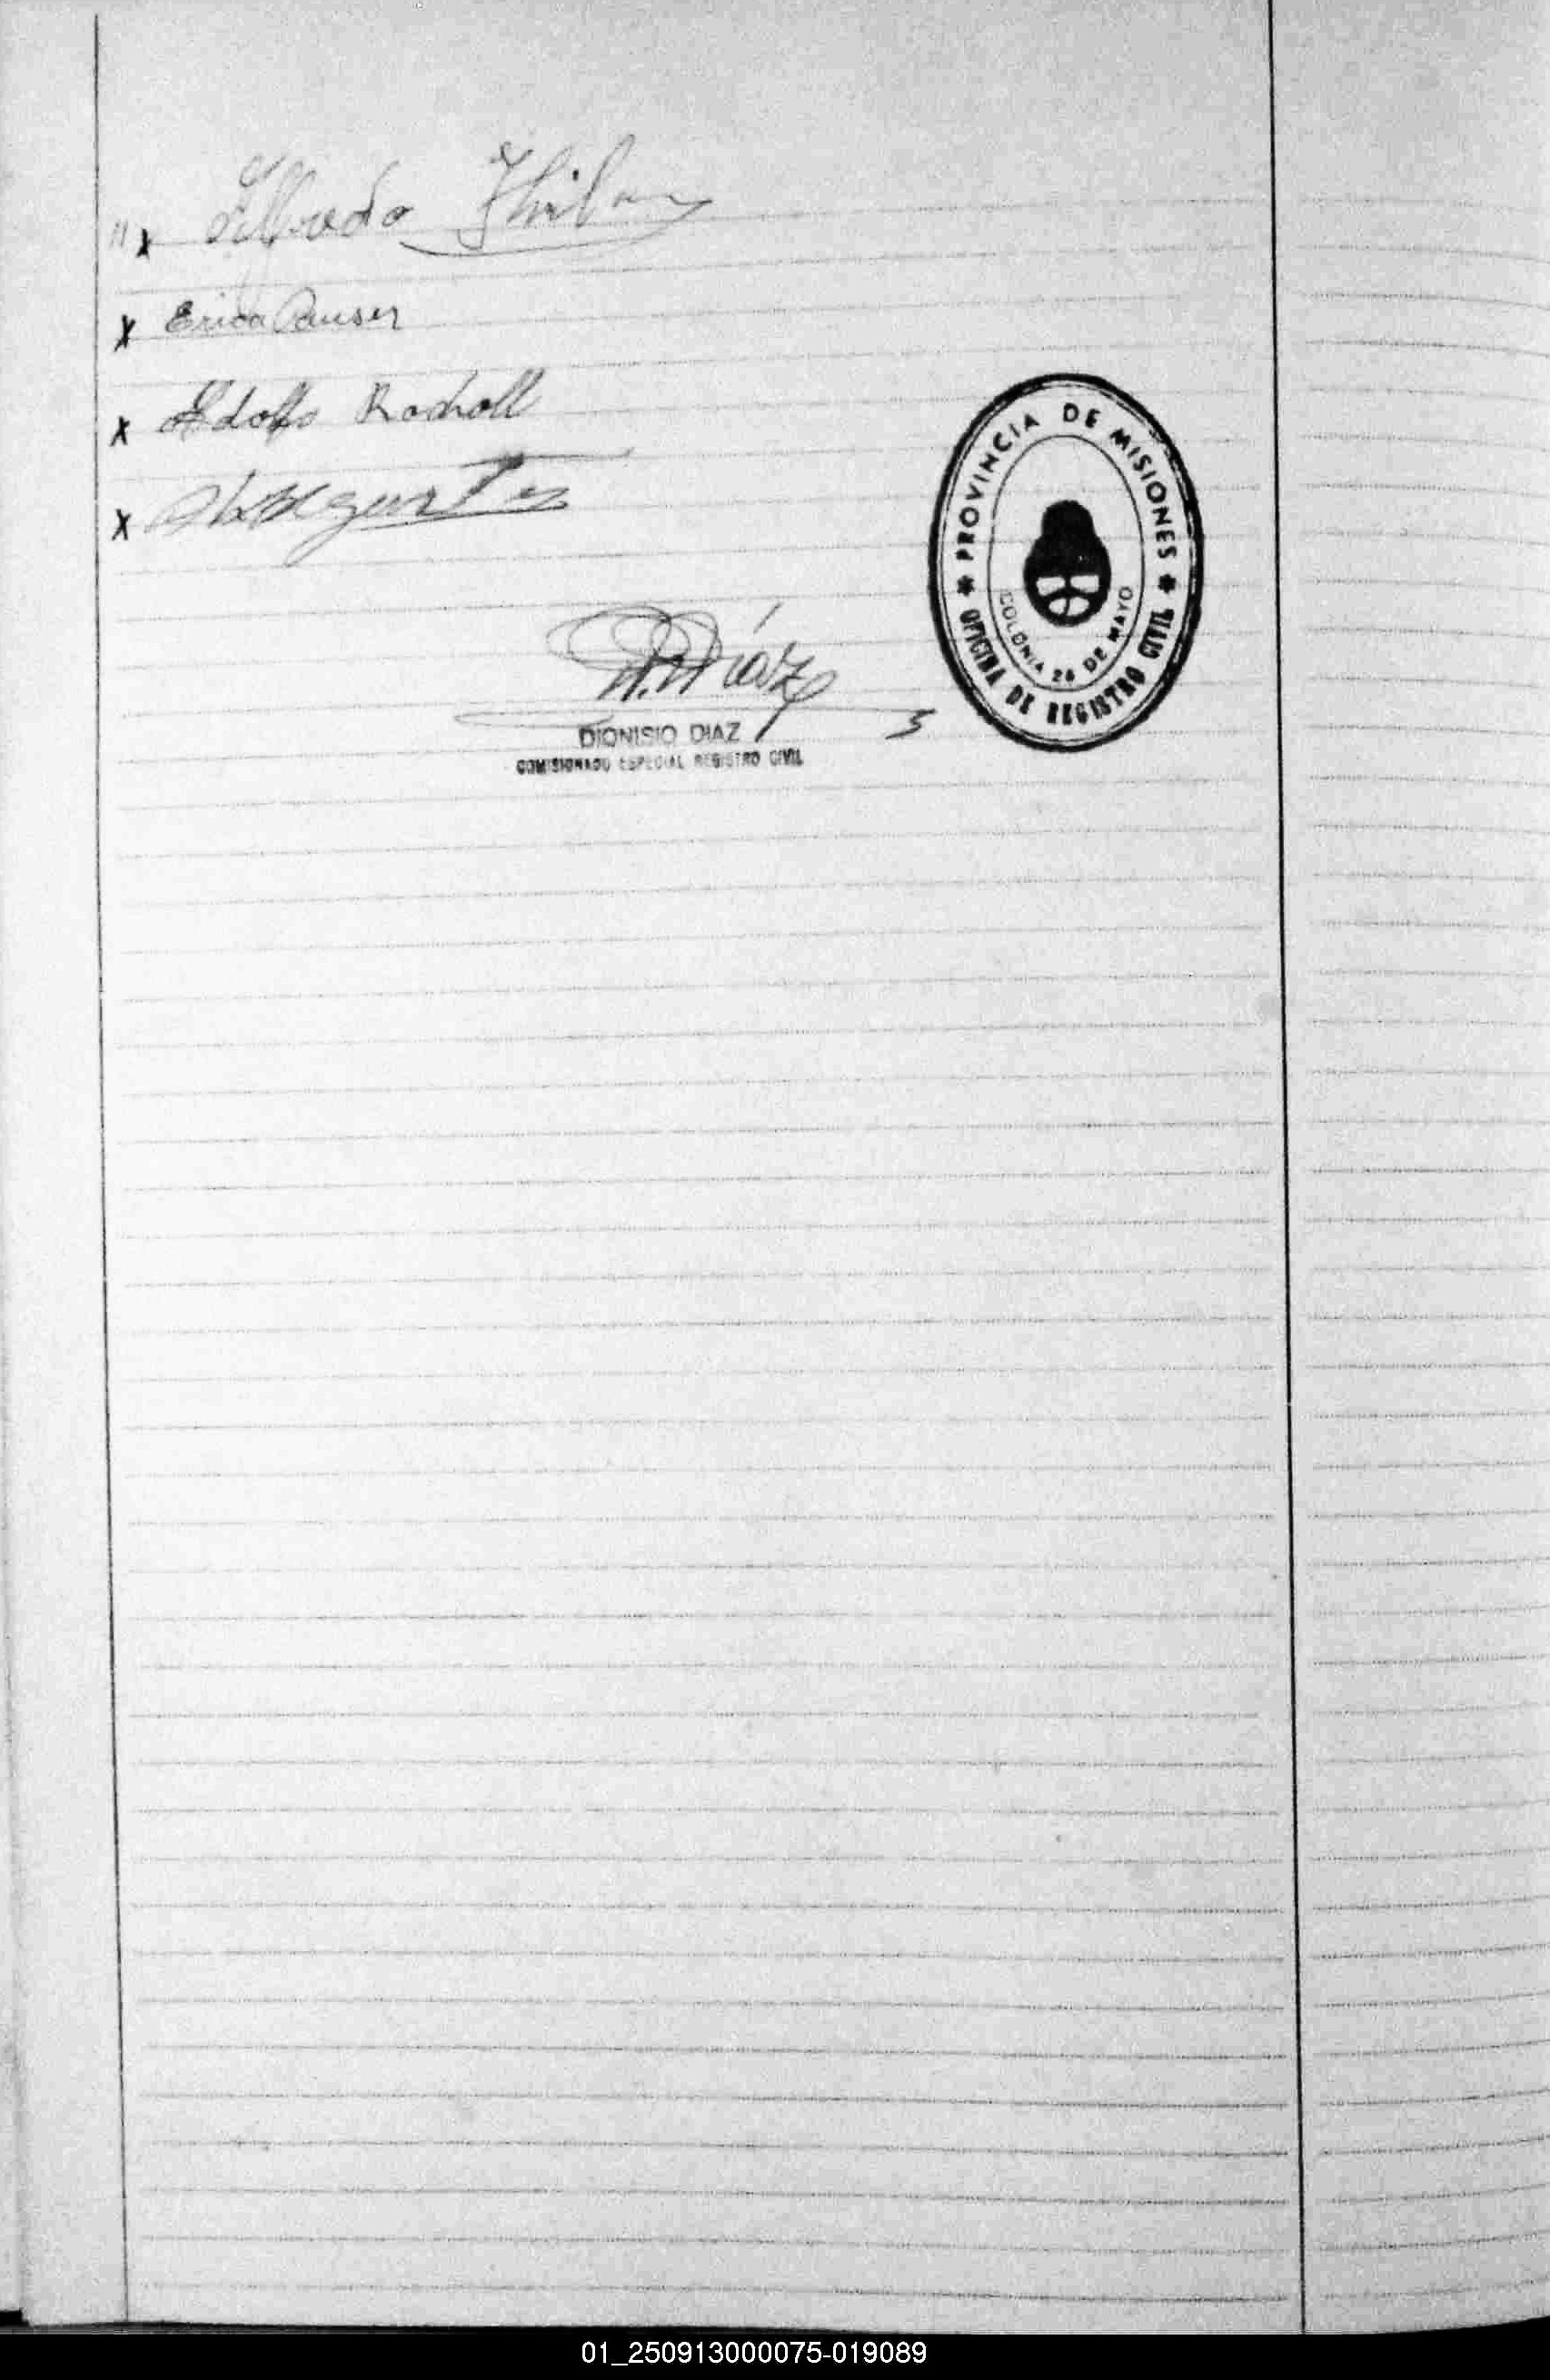 " x Alfredo
x Erica Pauser
x Adolfo Rocholl
x
D. Díaz
DIONISIO DIAZ
COMISIONADO ESPECIAL REGISTRO CIVIL
* PROVINCIA DE MISIONES *
COLONIA 25 DE MAYO
OFICINA DE REGISTRO CIVIL
01_250913000075-019089